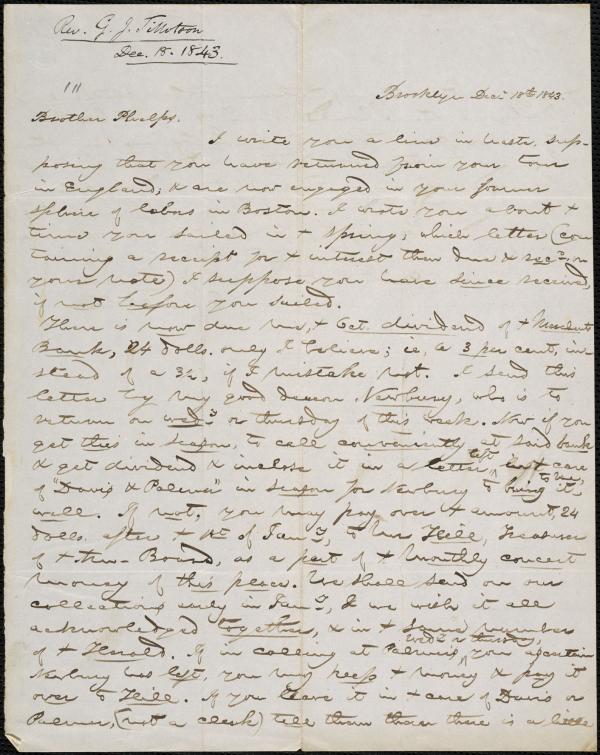 Rev. G. J. Tillotson
Dec. 18. 1843.
Brooklyn Dec. 18th 1843.
Brother Phelps.
I write you a line in haste, sup-
posing that you have returned from your tour
in England; & are now engaged in your former
sphere of labors in Boston. I wrote you about +
time you sailed in + spring; which letter (con
taining a receipt for + interest then due & recd. on
your note) I suppose you have since received,
if not before you sailed.
There is now due me, + Oct. dividend of +
Bank, 24 dolls. only I believe; ie, a 3 per cent, in-
stead of a 3½, if I mistake not. I send this
letter by my good deacon Newbury, who is to
return on wedy. or thursday of this week. Now if you
get this in season, to call conveniently at said bank
& get dividend & inclose it in a letter, left care
of "Davis & Palmer" in season for Newbury to bring it, to me,
well. If not, you may pay over + amount, 24
dolls. after + 1st of Jany., to Mr Hill, Treasurer
of + Am- Board, as a part of + monthly concert
money of this place. We shall send on our
collections early in Jany., & we wish it all
acknowledged together, & in + same number
of + Herald. If in calling at Palmers, wedy. or thursday, you ascertain
Newbury has left, you may keep + money & pay it
over to Hill. If you leave it in + care of Davis or
Palmer, (not a clerk) tell them there is a little